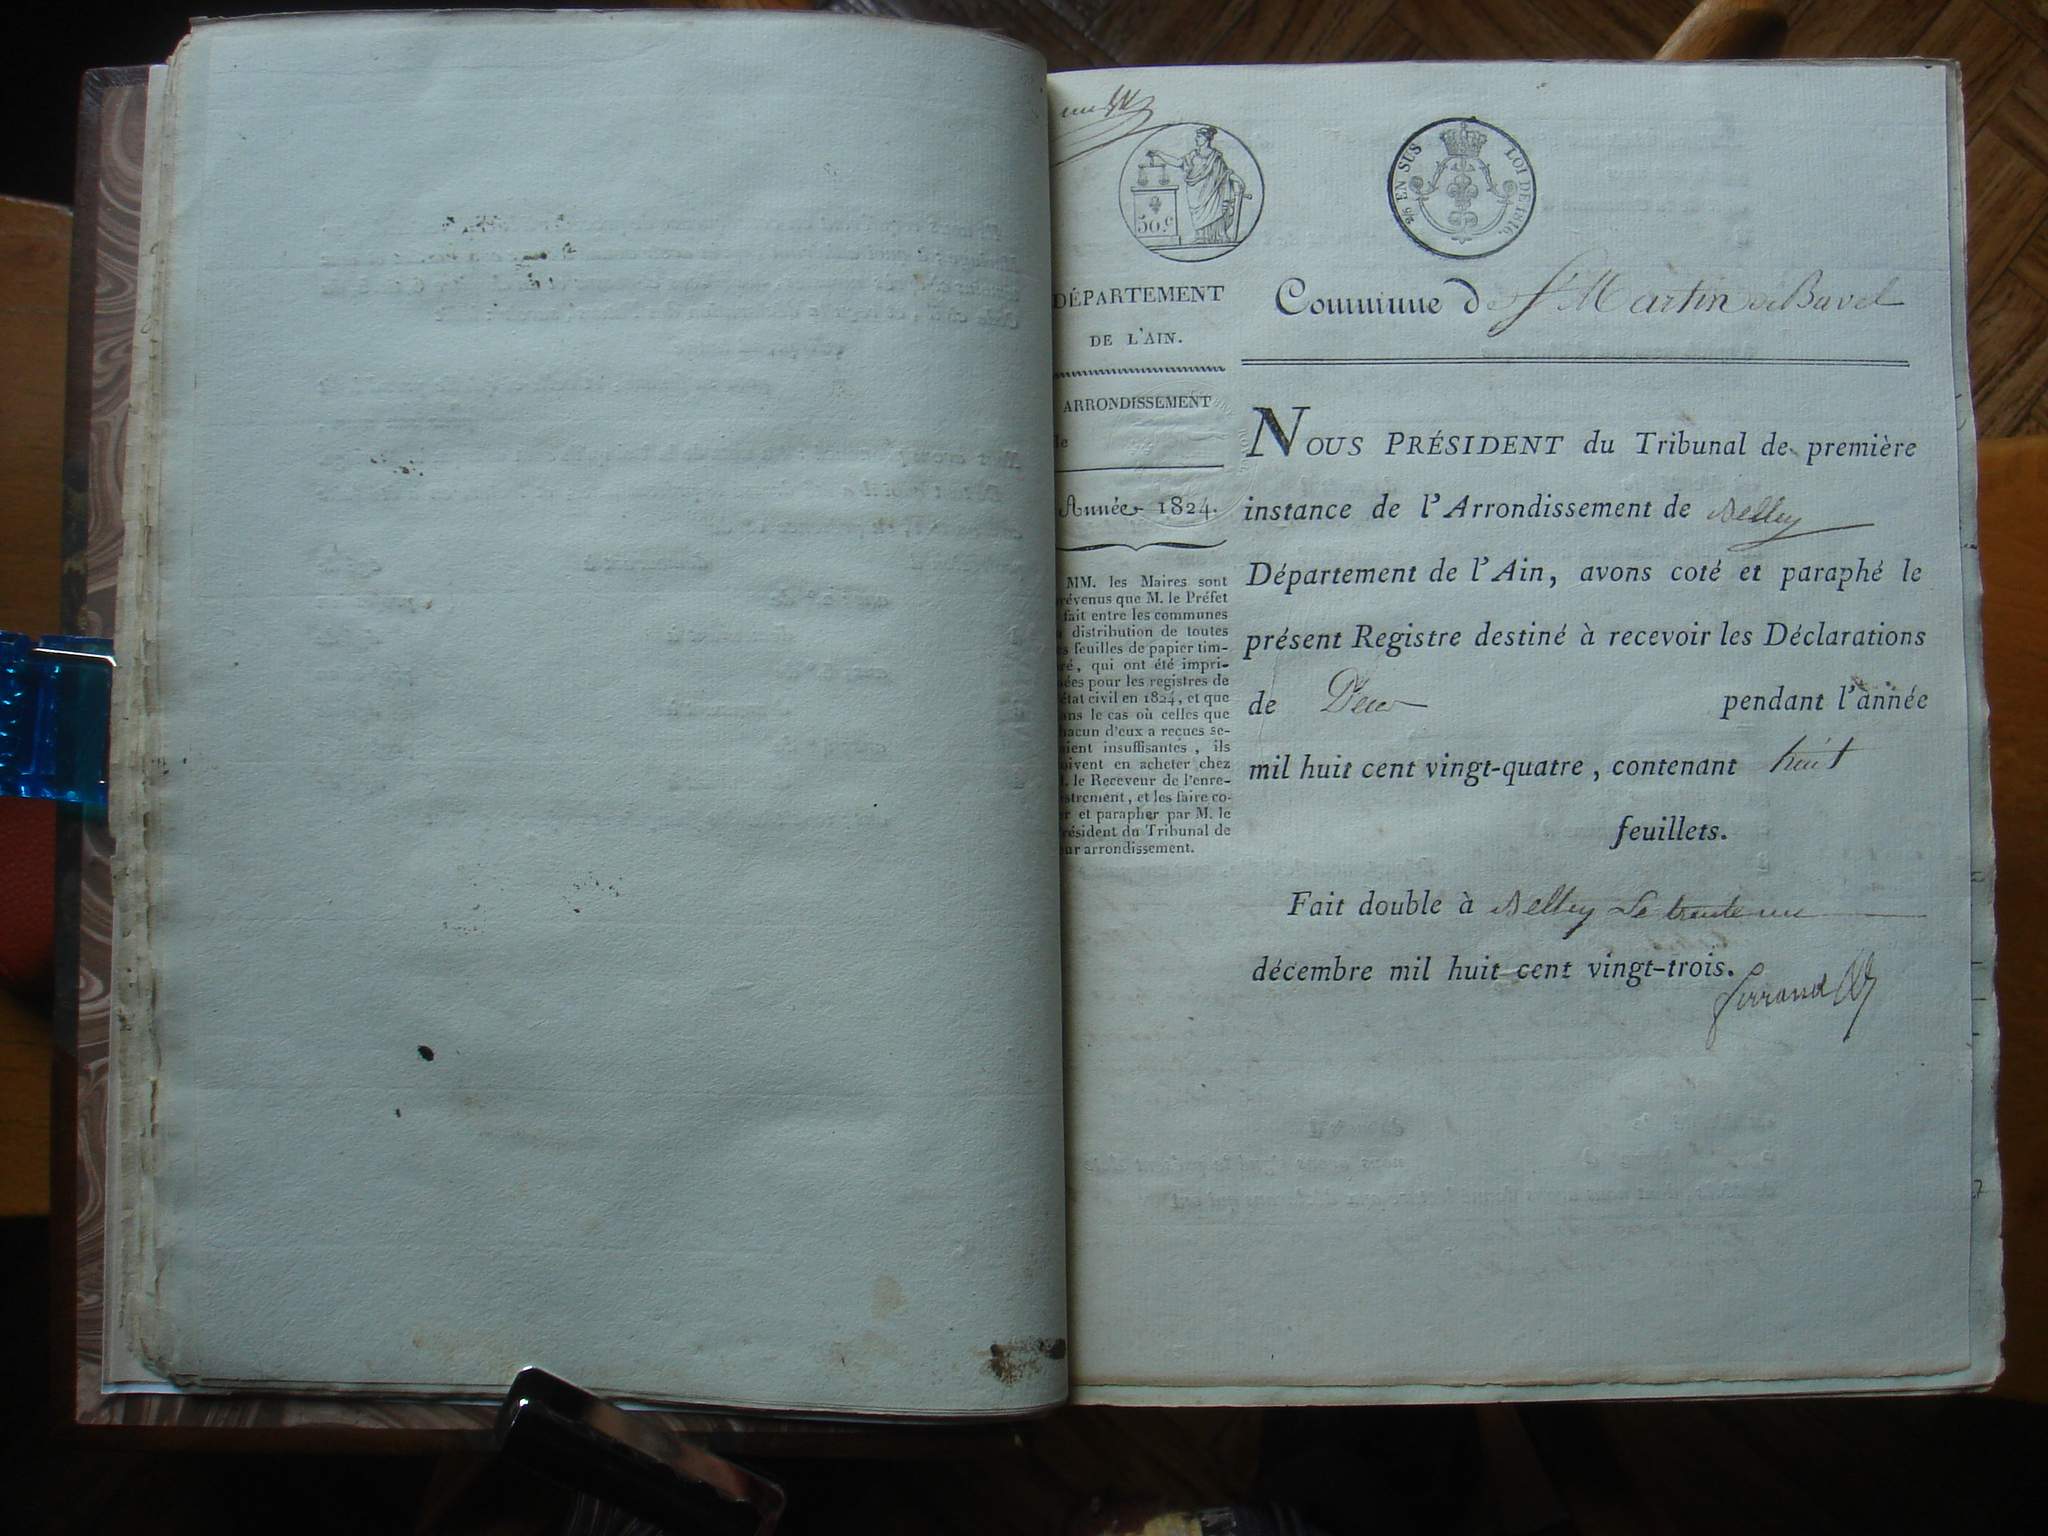 50 c
2/5 EN SUS LOI DE 1816.
DÉPARTEMENT
DE L'AIN.
ARRONDISSEMENT
Année 1824.
MM. les Maires sont
révenus que M. le Préfet
fait entre les communes
distribution de toutes
s feuilles de papier tim-
ré, qui ont été impri-
ées pour les registres de
état civil en 1824, et que
ans le cas où celles que
hacun d'eux a reçues se-
aient insuffisantes, ils
oivent en acheter chez
. le Receveur de l'enre-
strement, et les faire co-
er et parapher par M. le
résident du Tribunal de
ur arrondissement.
Commune de St Martin de Bavel
NOUS PRÉSIDENT du Tribunal de première
instance de l'Arrondissement de Belley
Département de l'Ain, avons coté et paraphé le
présent Registre destiné à recevoir les Déclarations
de Décès pendant l'année
mil huit cent vingt-quatre, contenant huit
feuillets.
Fait double à Belley Le trente un
décembre mil huit cent vingt-trois.